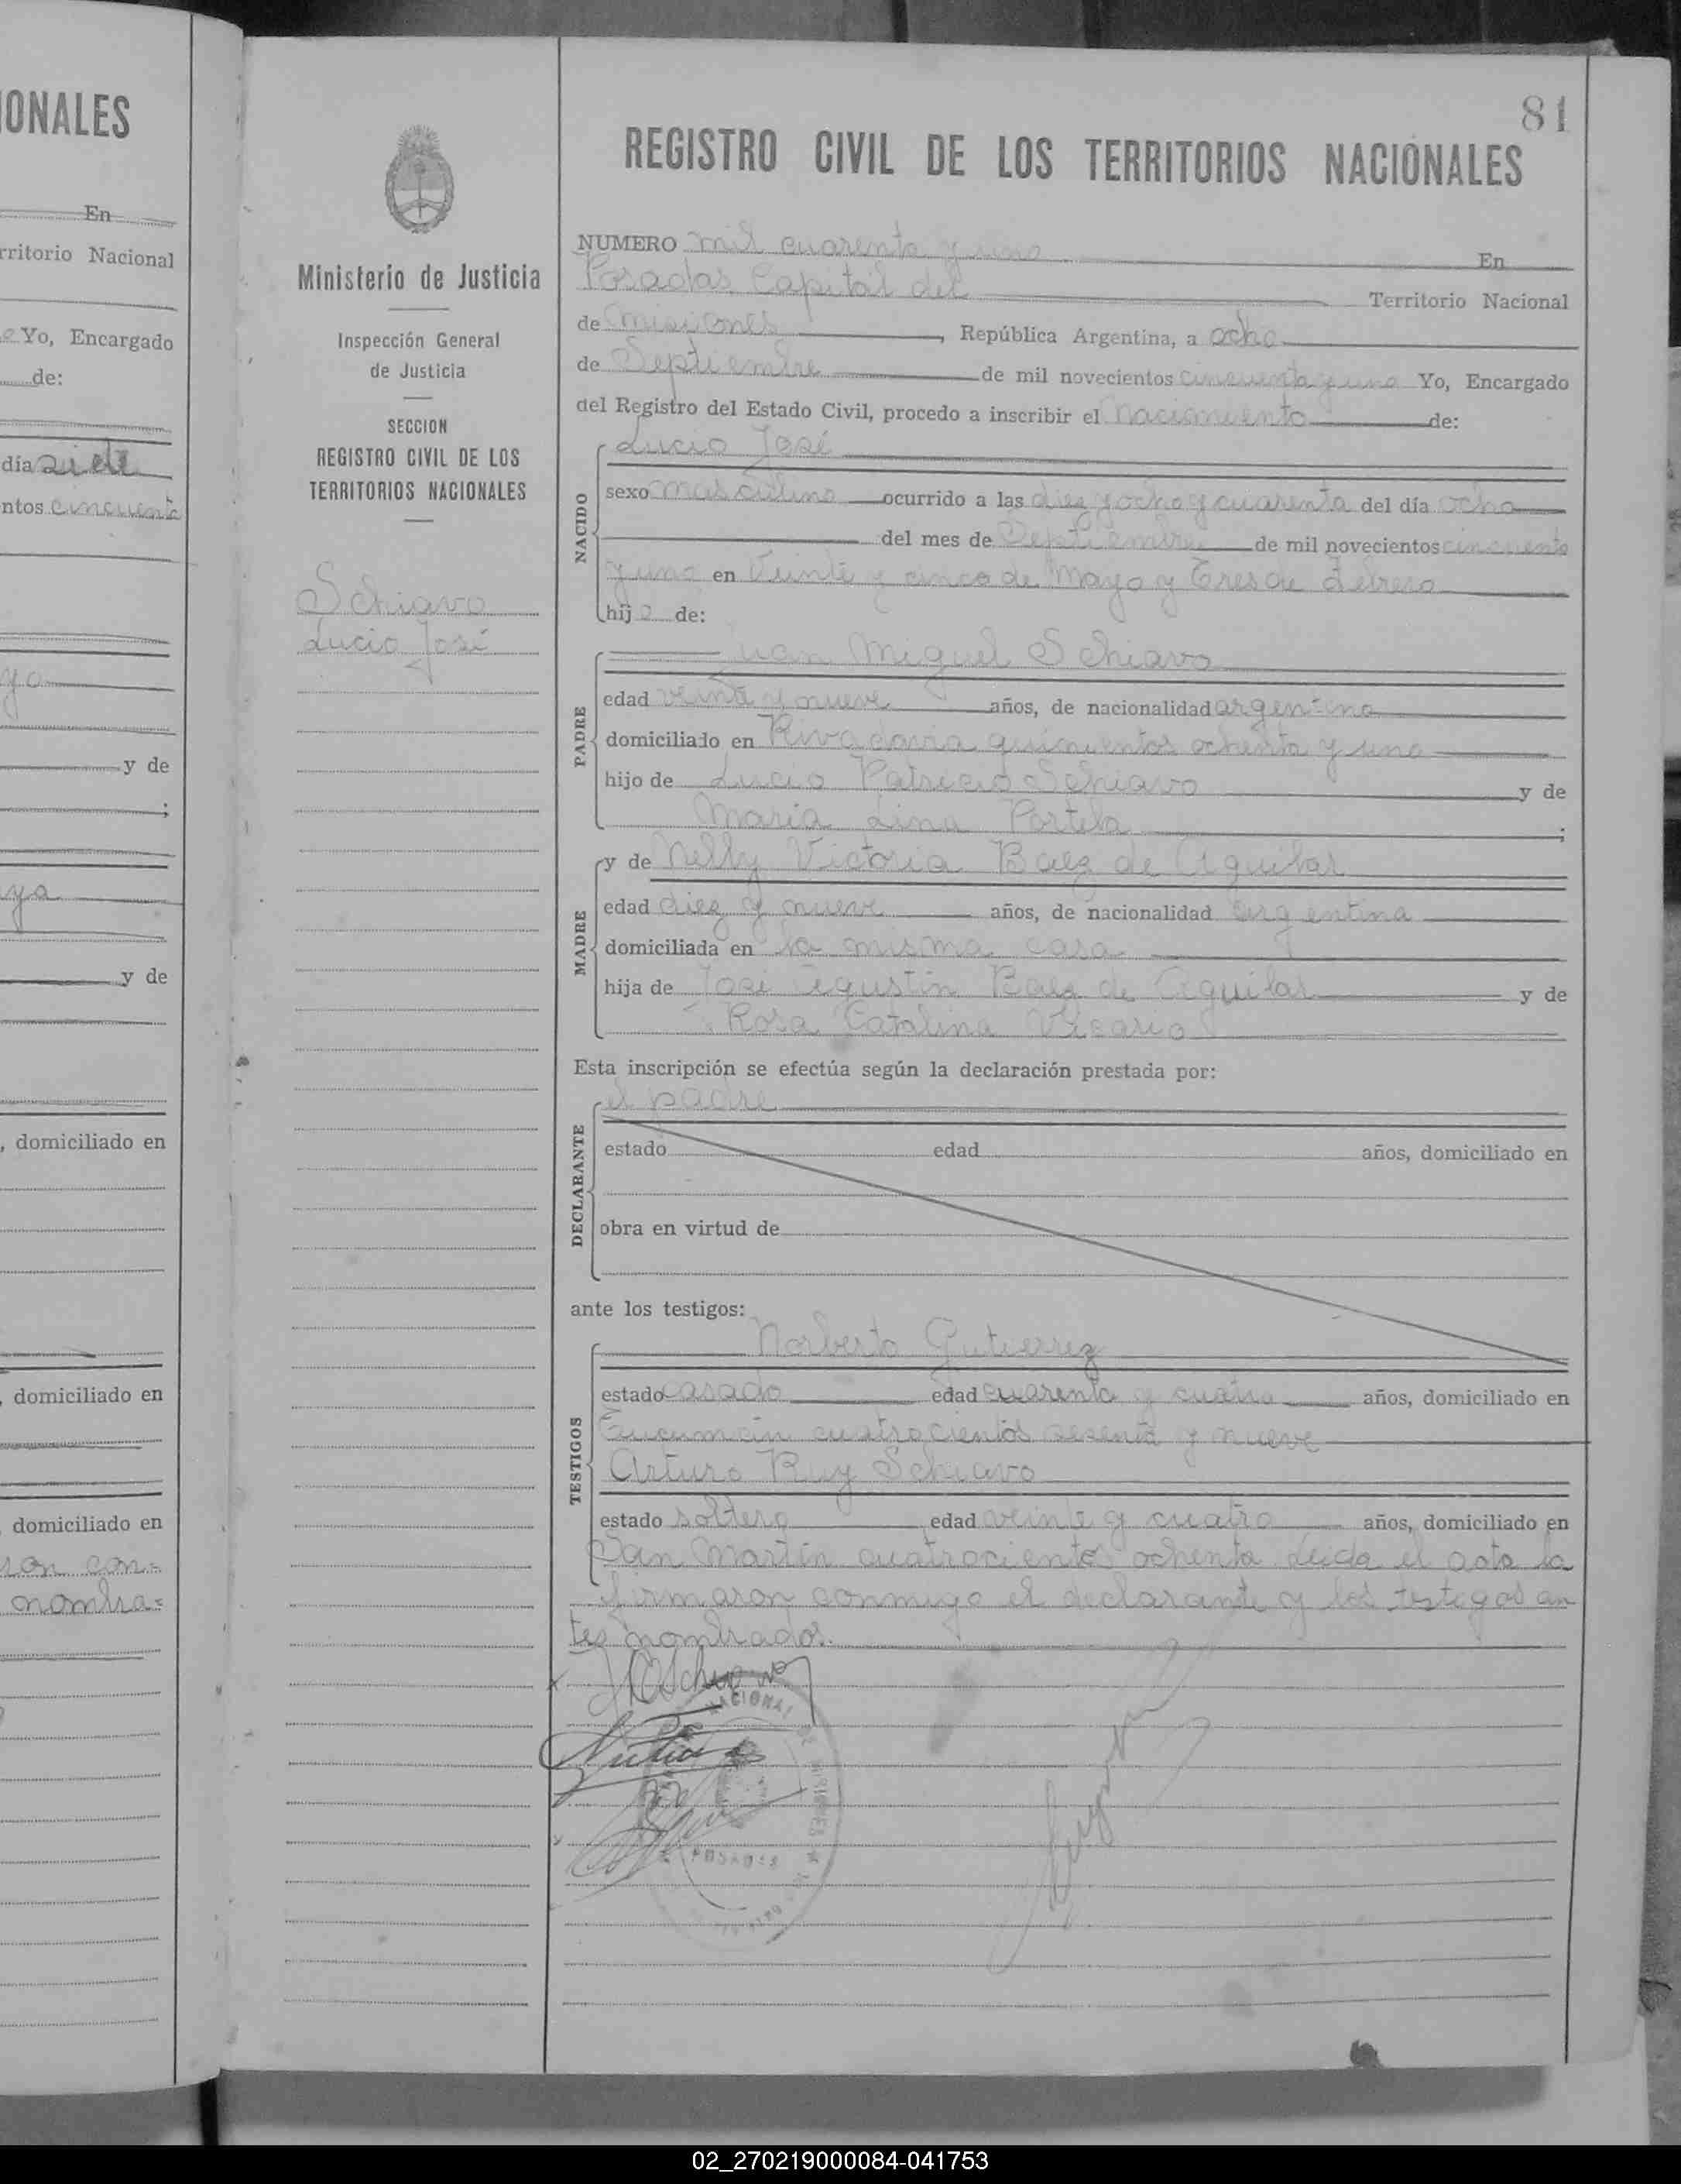 ONALES
En
rritorio Nacional
Yo, Encargado
de:
día siete
ntos cincuenta
y de
ya
y de
, domiciliado en
, domiciliado en
domiciliado en
son con=
nombra=
Ministerio de Justicia
Inspección General
de Justicia
SECCION
REGISTRO CIVIL DE LOS
TERRITORIOS NACIONALES
Schiavo
Lucio José
81
REGISTRO CIVIL DE LOS TERRITORIOS NACIONALES
NUMERO mil cuarenta y uno En
Posadas Capital del Territorio Nacional
de Misiones, República Argentina, a ocho
de Septiembre de mil novecientos cincuenta y uno Yo, Encargado
del Registro del Estado Civil, procedo a inscribir el nacimiento de:
NACIDO
Lucio José
sexo masculino ocurrido a las diez y ocho y cuarenta del día ocho
del mes de Septiembre de mil novecientos cincuenta
y uno en Veinte y cinco de Mayo y Tres de Febrero
hijo de:
PADRE
Juan Miguel Schiavo
edad veinte y nueve años, de nacionalidad argentina
domiciliado en Rivadavia quinientos ochenta y uno
hijo de Lucio Patricio Schiavo y de
Maria Lina Portela ;
MADRE
y de Nelly Victoria Baez de Aguilar
edad diez y nueve años, de nacionalidad argentina
domiciliada en la misma casa
hija de José Agustin Baez de Aguilar y de
Rosa Catalina Vicario
Esta inscripción se efectúa según la declaración prestada por:
DECLARANTE
el padre
estado edad años, domiciliado en
obra en virtud de
ante los testigos:
TESTIGOS
Norberto Gutierrez
estado casado edad cuarenta y cuatro años, domiciliado en
Tucumán cuatrocientos sesenta y nueve
Arturo Ruy Schiavo
estado soltero edad veinte y cuatro años, domiciliado en
San Martin cuatrocientos ochenta. Leida el acta la
firmaron conmigo el declarante y los testigos an
tes nombrados.
NACIONAL DE MISIONES
POSADAS
02_270219000084-041753